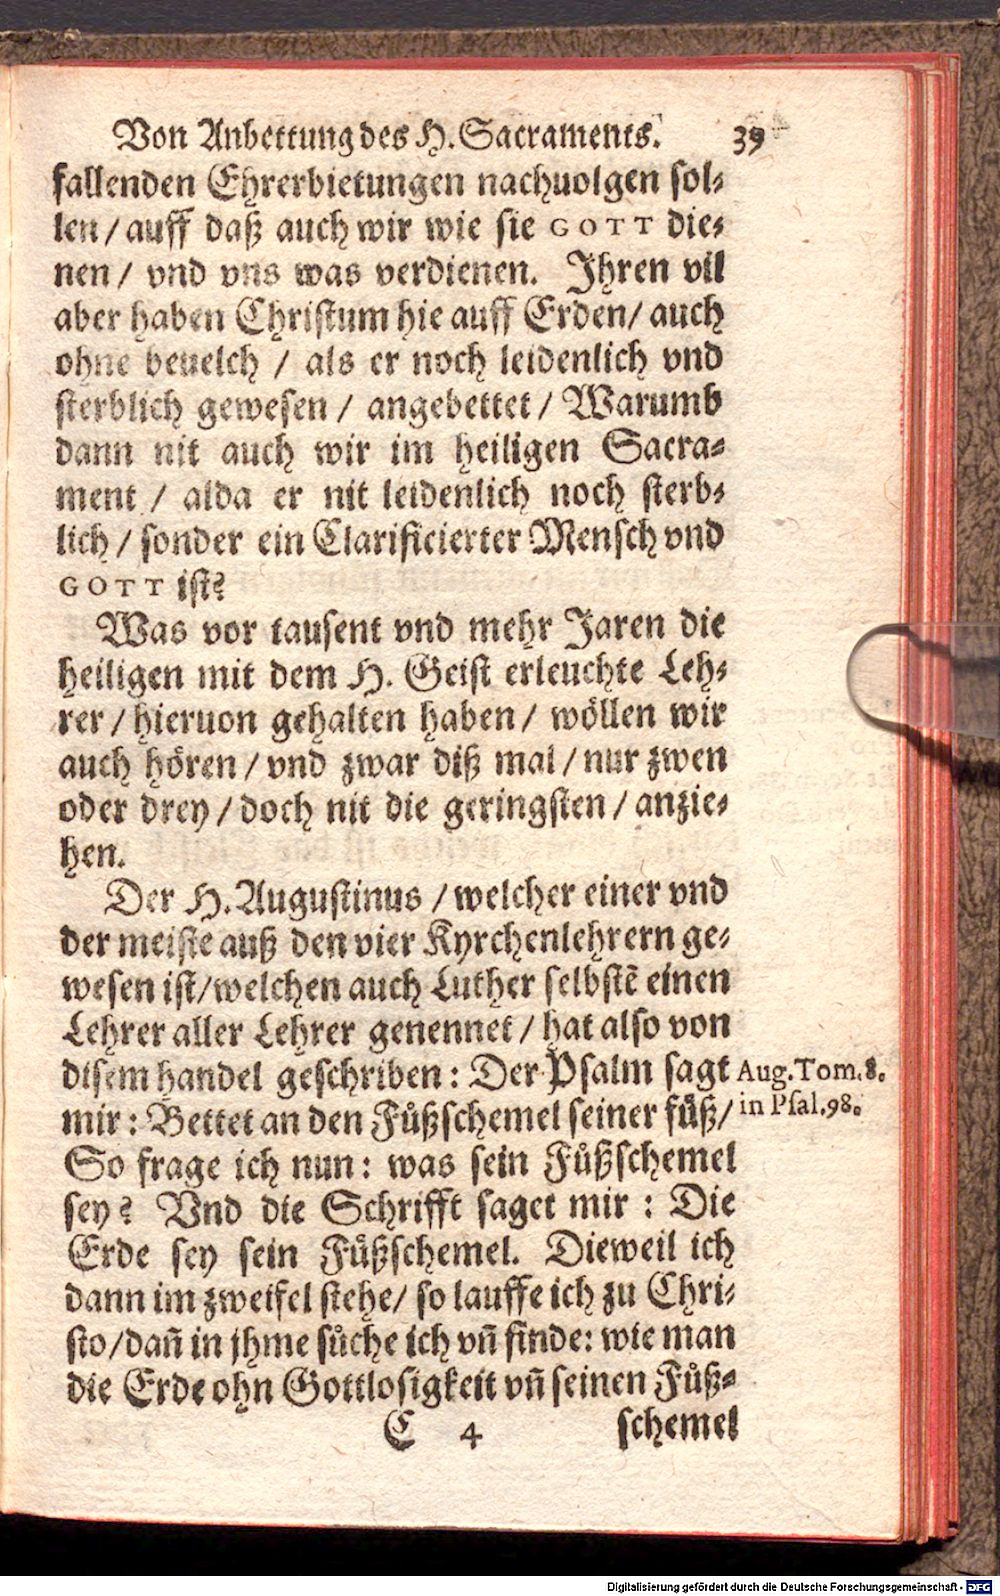 Von Anbettung des H. Sacraments. 39
fallenden Ehrerbietungen nachuolgen sol⸗
len / auff daß auch wir wie sie GOTT die⸗
nen / vnd vns was verdienen. Jhren vil
aber haben Christum hie auff Erden / auch
ohne beuelch / als er noch leidenlich vnd
sterblich gewesen / angebettet / Warumb
dann nit auch wir im heiligen Sacra⸗
ment / alda er nit leidenlich noch sterb⸗
lich / sonder ein Clarificierter Mensch vnd
GOTT ist?
Was vor tausent vnd mehr Jaren die
heiligen mit dem H. Geist erleuchte Leh⸗
rer / hieruon gehalten haben / wöllen wir
auch hören / vnd zwar diß mal / nur zwen
oder drey / doch nit die geringsten / anzie⸗
hen.
Der H. Augustinus / welcher einer vnd
der meiste auß den vier Kyrchenlehrern ge⸗
wesen ist / welchen auch Luther selbstē einen
Lehrer aller Lehrer genennet / hat also von
disem handel geschriben : Der Psalm sagt
mir : Bettet an den Fůßschemel seiner fůß /
So frage ich nun : was sein Fůßschemel
sey? Vnd die Schrifft saget mir : Die
Erde sey sein Fůßschemel. Dieweil ich
dann im zweifel stehe / so lauffe ich zu Chri⸗
sto / dañ in jhme sůche ich vñ finde : wie man
die Erde ohn Gottlosigkeit vñ seinen Fůß⸗
C 4 schemel
Aug. Tom. 8.
in Psal. 98.
Digitalisierung gefördert durch die Deutsche Forschungsgemeinschaft - DFG